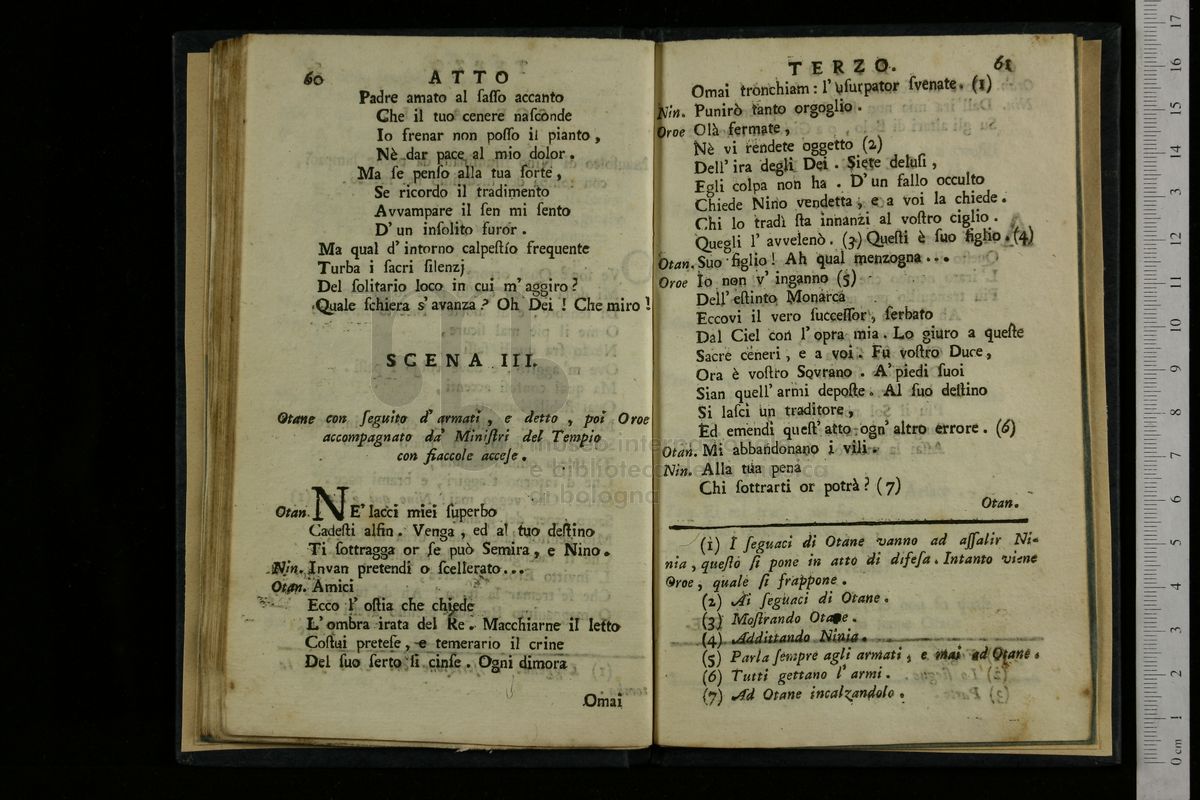 60 ATTO
Padre amato al ſaſſo accanto
Che il tuo cenere naſconde
Io frenar non poſſo il pianto,
Nè dar pace al mio dolor.
Ma ſe penſo alla tua ſorte,
Se ricordo il tradimento
Avvampare il ſen mi ſento
D' un inſolito furor.
Ma qual d' intorno calpeſtío frequente
Turba i ſacri ſilenzj
Del ſolitario loco in cui m' aggiro?
Quale ſchiera s' avanza? Oh Dei! Che miro!
SCENA III.
Otane con ſeguito d' armati, e detto, poi Oroe
accompagnato da' Miniſtri del Tempio
con fiaccole acceſe.
Otan. NE' lacci miei ſuperbo
Cadeſti alfin. Venga, ed al tuo deſtino
Ti ſottragga or ſe può Semira, e Nino.
Nin. Invan pretendi o ſcellerato...
Otan. Amici
Ecco l' oſtia che chiede
L' ombra irata del Re. Macchiarne il letto
Coſtui preteſe, e temerario il crine
Del ſuo ſerto ſi cinſe. Ogni dimora
Omai
TERZO. 61
Omai tronchiam: l' uſurpator ſvenate. (1)
Nin. Punirò tanto orgoglio.
Oroe Olà fermate,
Nè vi rendete oggetto (2)
Dell' ira degli Dei. Siete deluſi,
Egli colpa non ha. D' un fallo occulto
Chiede Nino vendetta, e a voi la chiede.
Chi lo tradì ſta innanzi al voſtro ciglio.
Quegli l' avvelenò. (3) Queſti è ſuo figlio. (4)
Otan. Suo figlio! Ah qual menzogna...
Oroe Io non v' inganno (5)
Dell' eſtinto Monarca
Eccovi il vero ſucceſſor, ſerbato
Dal Ciel con l' opra mia. Lo giuro a queſte
Sacre ceneri, e a voi. Fu voſtro Duce,
Ora è voſtro Sovrano. A' piedi ſuoi
Sian quell' armi depoſte. Al ſuo deſtino
Si laſci un traditore,
Ed emendi queſt' atto ogn' altro errore. (6)
Otan. Mi abbandonano i vili.
Nin. Alla tua pena
Chi ſottrarti or potrà? (7)
Otan.
(1) I ſeguaci di Otane vanno ad aſſalir Ni-
nia, queſto ſi pone in atto di difeſa. Intanto viene
Oroe, quale ſi frappone.
(2) Ai ſeguaci di Otane.
(3) Moſtrando Otane.
(4) Addittando Ninia.
(5) Parla ſempre agli armati, e mai ad Otane.
(6) Tutti gettano l' armi.
(7) Ad Otane incalzandolo.
museo internazionale
e biblioteca della musica
di bologna
0 cm 1 2 3 4 5 6 7 8 9 10 11 12 13 14 15 16 17